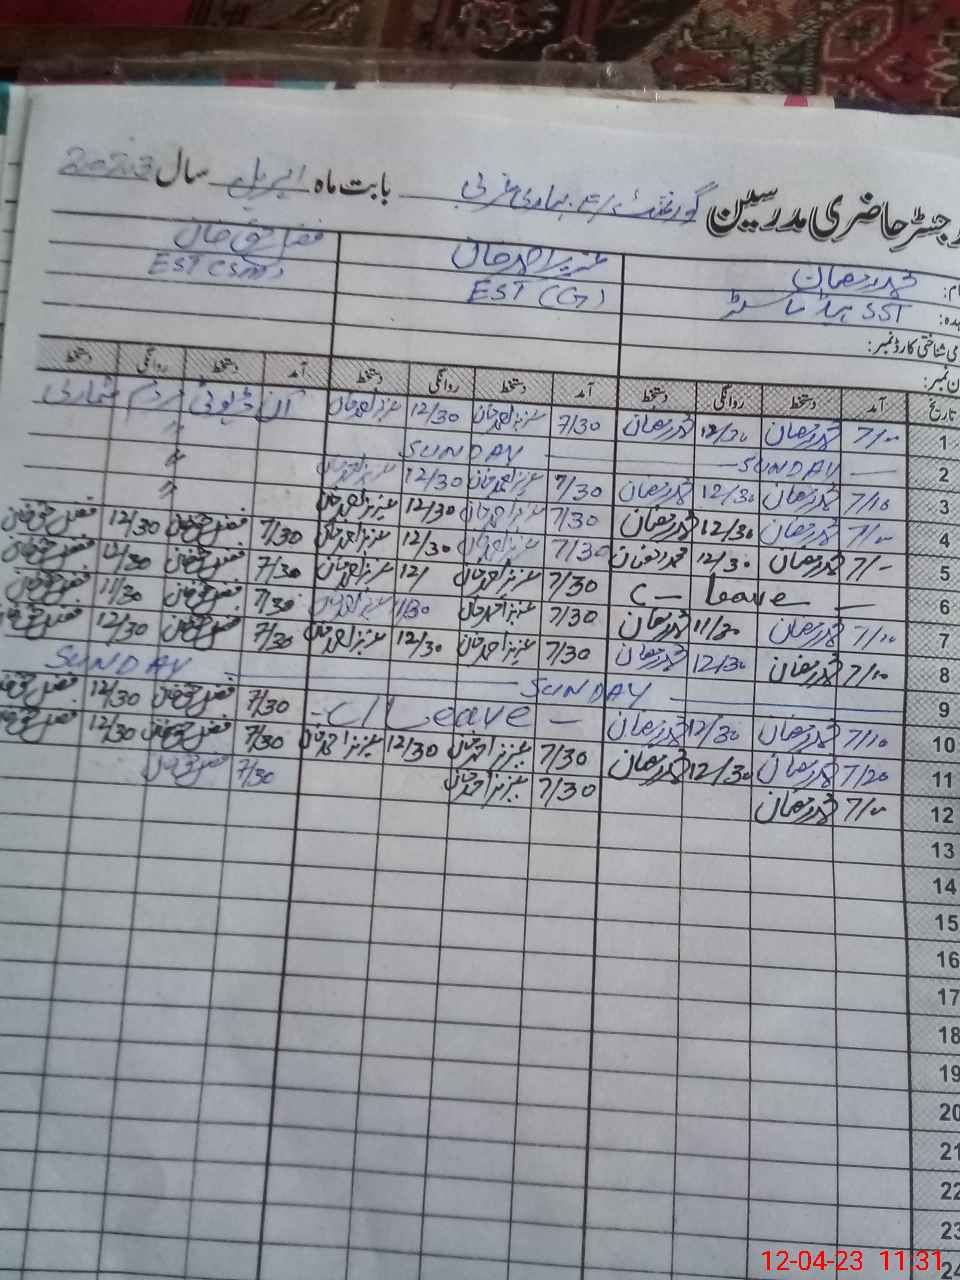 جسٹر حاضری مدرسین گورنمنٹ بابت ماہ اپریل سال 2023
نام: محمد رحمان عزیز احمد خان فضل حق خان
عہدہ: SST ہیڈ ماسٹر EST (G) EST (SM)
شناختی کارڈ نمبر:
ن نمبر:
تاریخ آمد دستخط روانگی دستخط آمد دستخط روانگی دستخط آمد دستخط روانگی دستخط
1 7/00 محمد رحمان 12/30 محمد رحمان 7/30 عزیز احمد خان 12/30 عزیز احمد خان آن ڈیوٹی مردم شماری
2 SUNDAY SUNDAY "
3 7/10 محمد رحمان 12/30 محمد رحمان 7/30 عزیز احمد خان 12/30 عزیز احمد خان "
4 7/00 محمد رحمان 12/30 محمد رحمان 7/30 عزیز احمد خان 12/30 عزیز احمد خان "
5 7/00 محمد رحمان 12/30 محمد رحمان 7/30 عزیز احمد خان 12/30 عزیز احمد خان 7/30 فضل حق خان 12/30 فضل حق خان
6 C - Leave 7/30 عزیز احمد خان 12/ عزیز احمد خان 7/30 فضل حق خان 12/30 فضل حق خان
7 7/10 محمد رحمان 11/30 محمد رحمان 7/30 عزیز احمد خان عزیز احمد خان 7/30 فضل حق خان 11/30 فضل حق خان
8 7/10 محمد رحمان 12/30 محمد رحمان 7/30 عزیز احمد خان 12/30 عزیز احمد خان 7/30 فضل حق خان 12/30 فضل حق خان
9 SUNDAY SUNDAY
10 7/10 محمد رحمان 12/30 محمد رحمان - C/Leave - 7/30 فضل حق خان 12/30 فضل حق خان
11 7/20 محمد رحمان 12/30 محمد رحمان 7/30 عزیز احمد خان 12/30 عزیز احمد خان 7/30 فضل حق خان 12/30 فضل حق خان
12 7/00 محمد رحمان 7/30 عزیز احمد خان 7/30 فضل حق خان
13
14
15
16
17
18
19
20
21
22
23
24
12-04-23 11:31